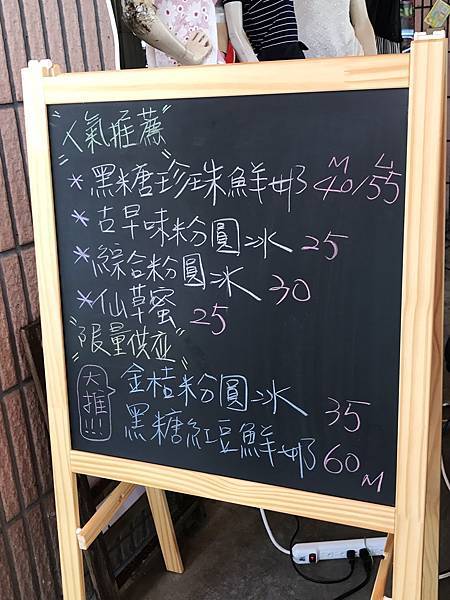 "人氣推薦"
*黑糖珍珠鮮奶 M L
40/55
*古早味粉圓冰 25
*綜合粉圓冰 30
*仙草蜜 25
"限量供应"
大推!!!
金桔粉圓冰 35
黑糖紅豆鮮奶 60 M